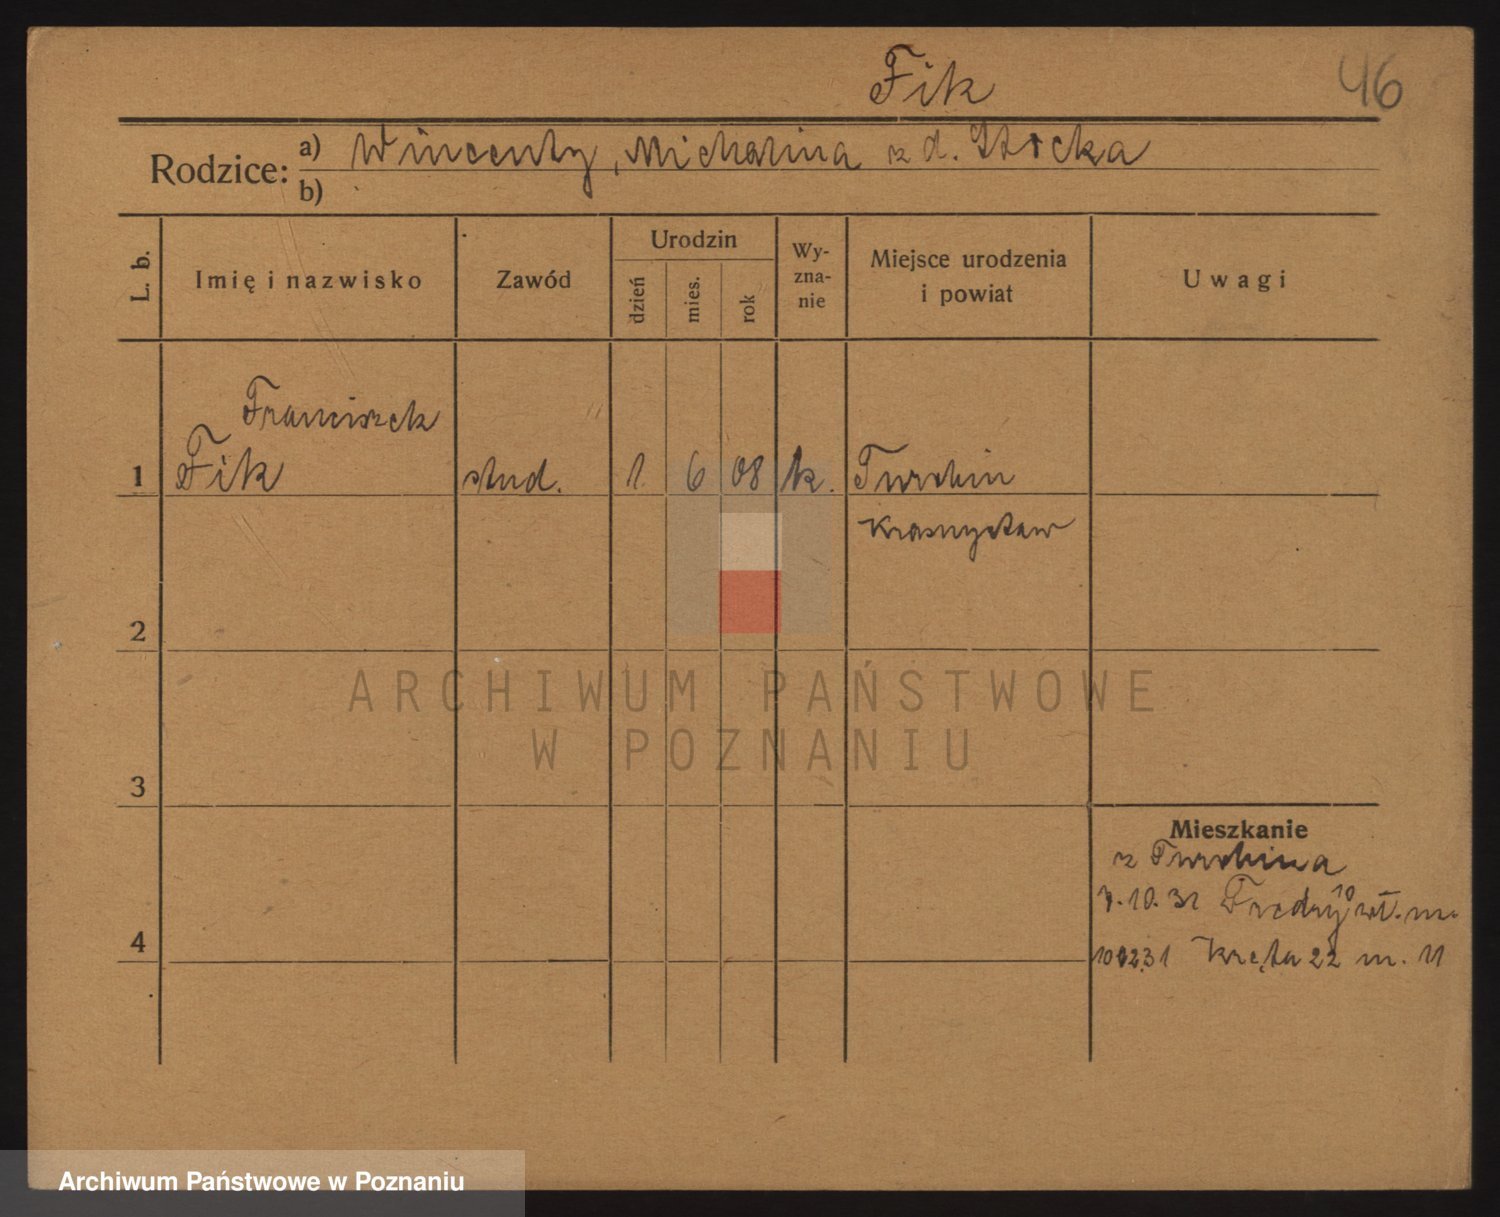 Fik
46
Rodzice: a) Wincenty, Michalina z d.
b)
L. b.
Imię i nazwisko
Zawód
Urodzin
dzień
mies.
rok
Wy-
zna-
nie
Miejsce urodzenia
i powiat
Uwagi
Franciszek
1 Fik stud. 1 6 08 k. Turobin
Krasnystaw
2
ARCHIWUM PAŃSTWOWE
W POZNANIU
3
Mieszkanie
z Turobina
7.10.31 Fredry 10 wł. m.
4
Kręta 22 m. 11
Archiwum Państwowe w Poznaniu